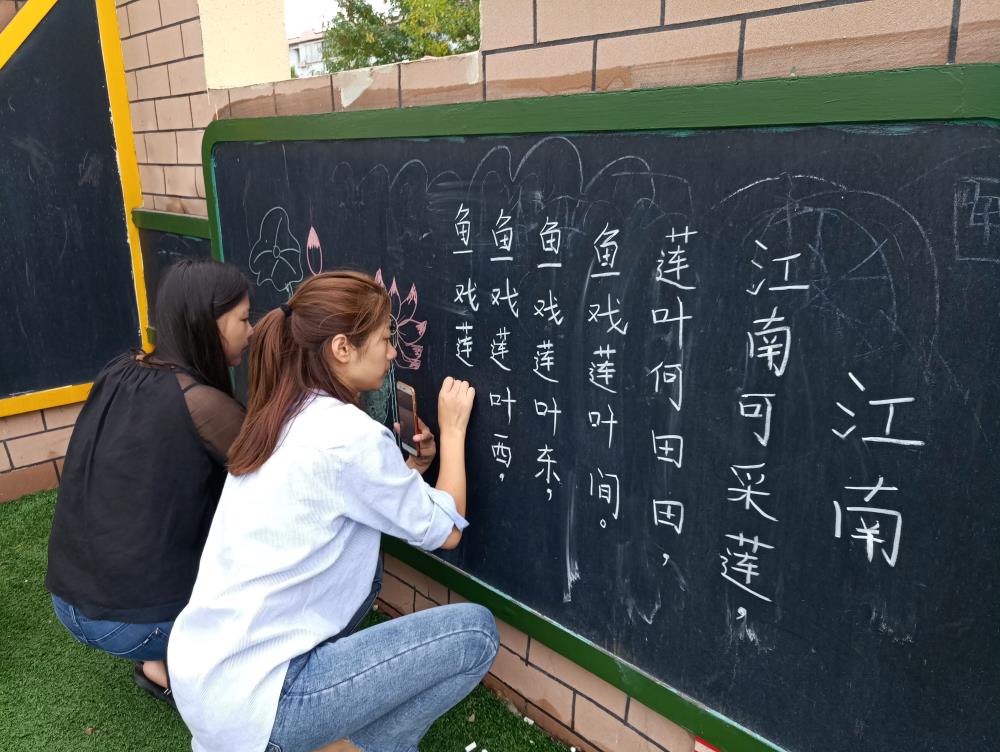 江南
江南可采莲，
莲叶何田田，
鱼戏莲叶间。
鱼戏莲叶东，
鱼戏莲叶西，
鱼戏莲